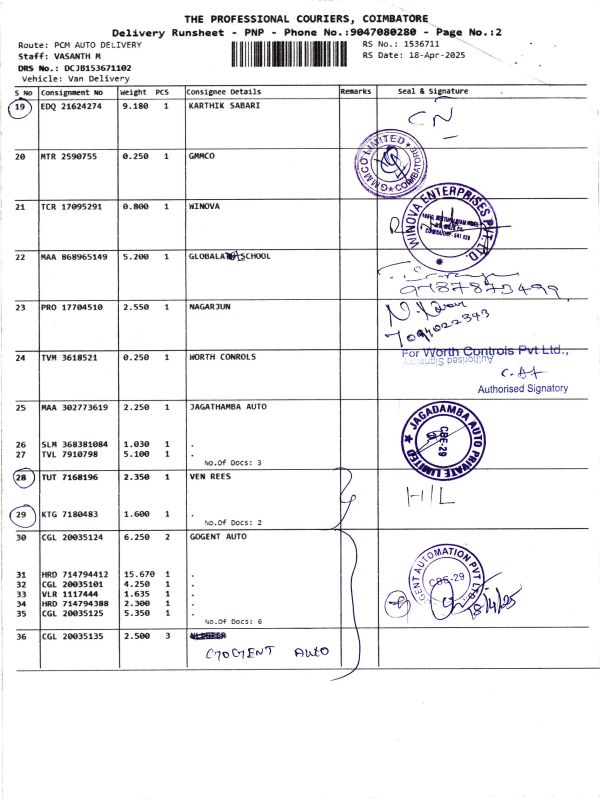 THE PROFESSIONAL COURIERS, COIMBATORE
Delivery Runsheet - PNP - Phone No.:9047080280 - Page No.:2
Route: PCM AUTO DELIVERY RS No.: 1536711
Staff: VASANTH M RS Date: 18-Apr-2025
DRS No.: DCJB153671102
Vehicle: Van Delivery
S No Consignment No Weight PCS Consignee Details Remarks Seal & Signature
19 EDQ 21624274 9.180 1 KARTHIK SABARI
CN
20 MTR 2590755 0.250 1 GMMCO
GMMCO LIMITED COIMBATORE
21 TCR 17095291 0.800 1 WINOVA
WINOVA ENTERPRISES PVT. LTD.
22 MAA 868965149 5.200 1 GLOBAL SCHOOL
9787873499
23 PRO 17704510 2.550 1 NAGARJUN
7094022343
24 TVM 3618521 0.250 1 WORTH CONROLS
For Worth Controls Pvt Ltd.,
Authorised Signatory
Authorised Signatory
25 MAA 302773619 2.250 1 JAGATHAMBA AUTO
JAGADAMBA AUTO PRIVATE LIMITED
CBE-29
26 SLM 368381084 1.030 1 .
27 TVL 7910798 5.100 1 .
No.Of Docs: 3
28 TUT 7168196 2.350 1 VEN REES
H/L
29 KTG 7180483 1.600 1 .
No.Of Docs: 2
30 CGL 20035124 6.250 2 GOGENT AUTO
GENT AUTOMATION PVT LTD.
CBE-29
18/4/25
31 HRD 714794412 15.670 1 .
32 CGL 20035101 4.250 1 .
33 VLR 1117444 1.635 1 .
34 HRD 714794388 2.300 1 .
35 CGL 20035125 5.350 1 .
No.Of Docs: 6
36 CGL 20035135 2.500 3
GOGENT AUTO